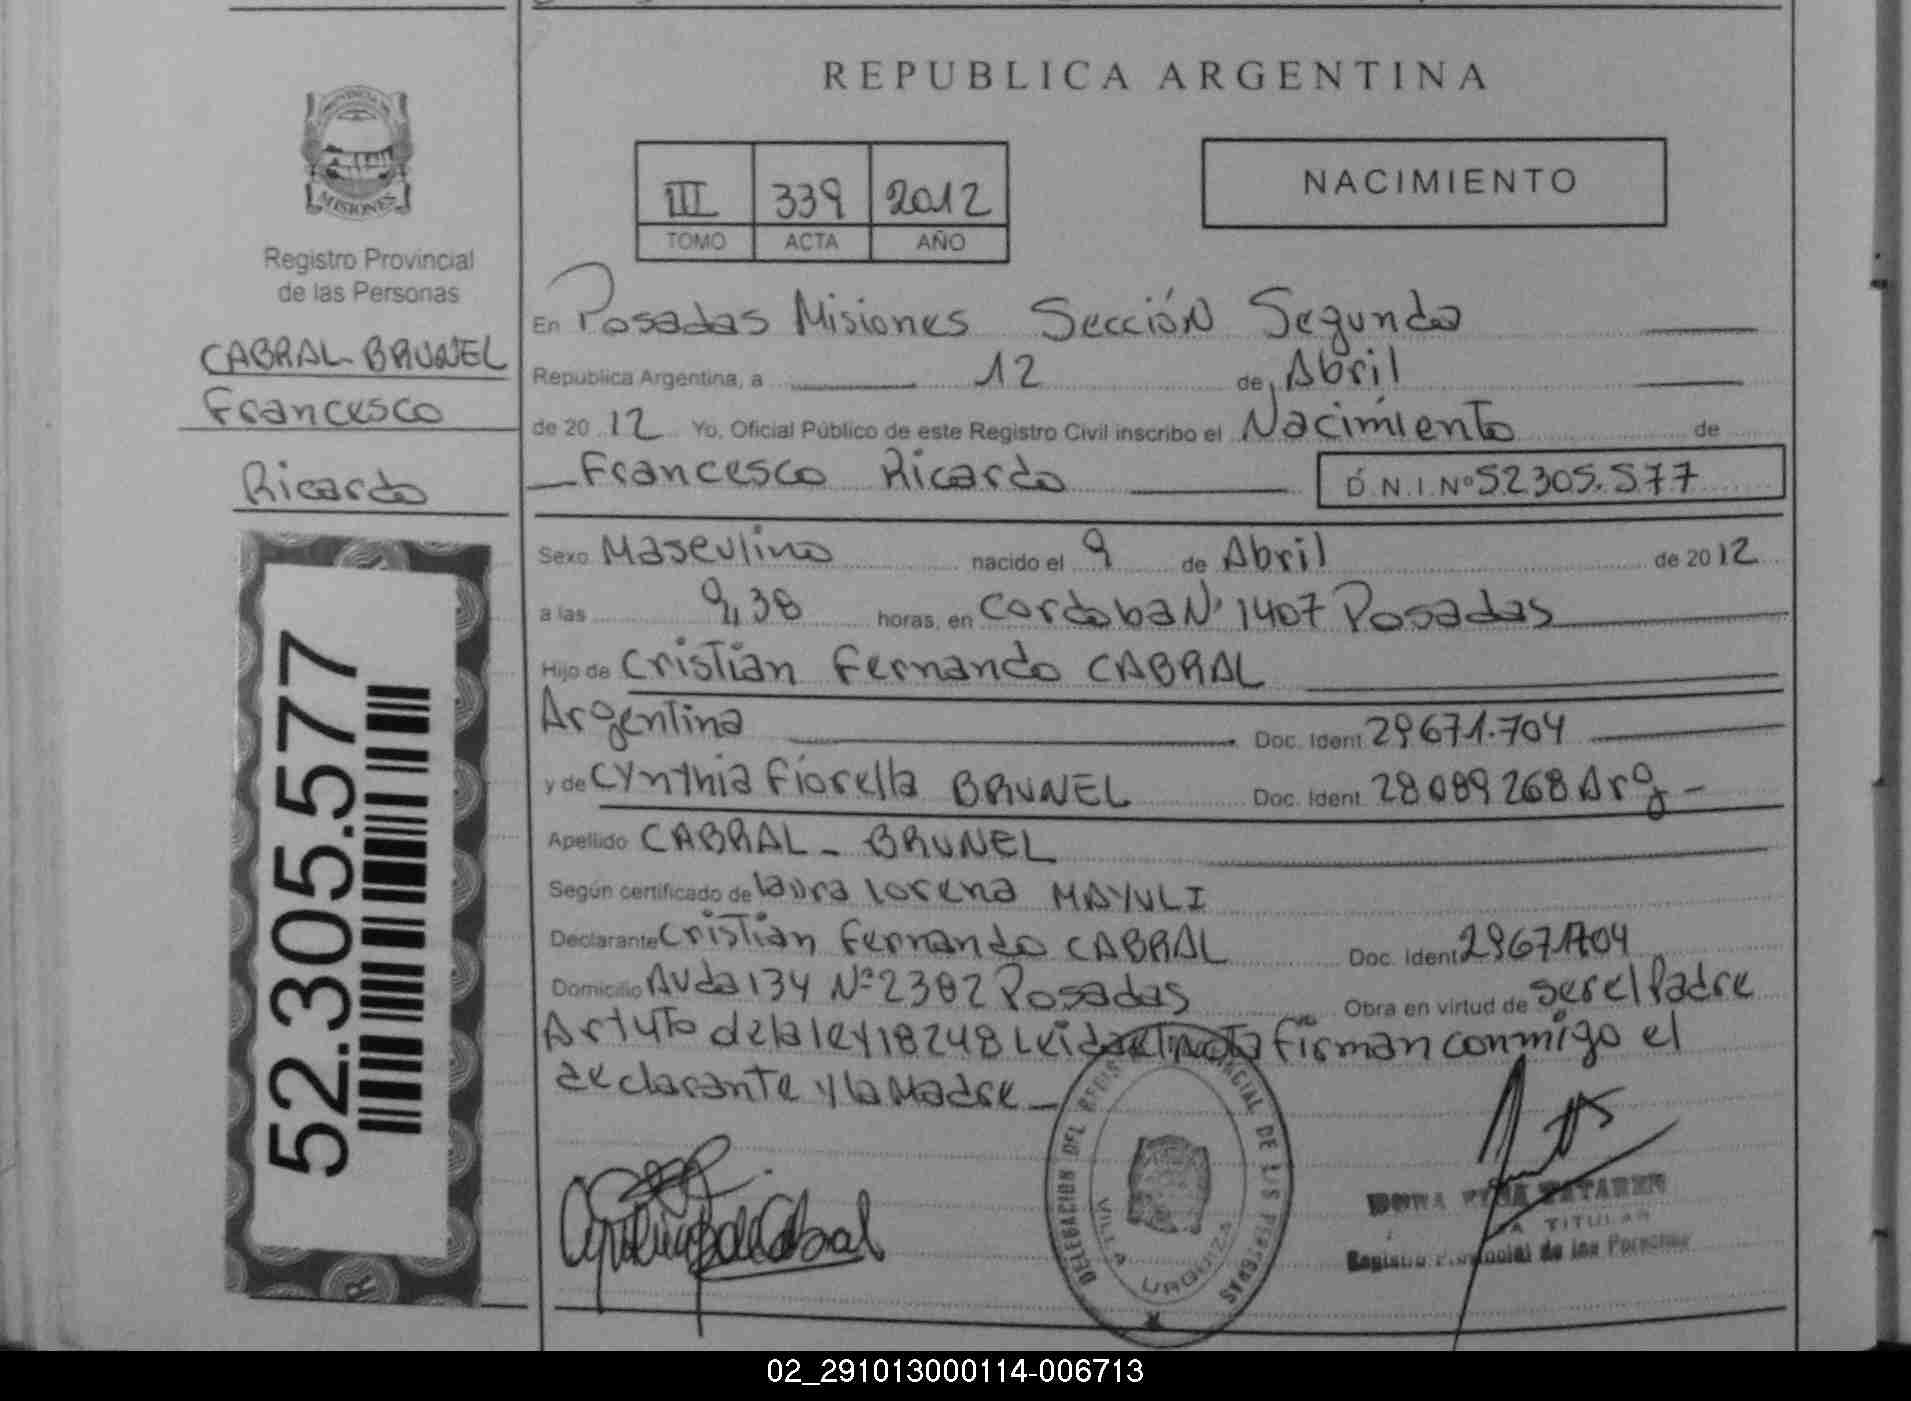 REPUBLICA ARGENTINA
PROVINCIA DE
MISIONES
Registro Provincial
de las Personas
CABRAL-BRUNEL
Francesco
Ricardo
52.305.577
III 339 2012
TOMO ACTA AÑO
NACIMIENTO
En Posadas Misiones Sección Segunda
Republica Argentina, a 12 de Abril
de 2012 Yo, Oficial Público de este Registro Civil inscribo el Nacimiento de
Francesco Ricardo D.N.I.Nº 52305.577
Sexo Masculino nacido el 9 de Abril de 2012
a las 9,38 horas, en Cordoba Nº 1407 Posadas
Hijo de Cristian Fernando CABRAL
Argentina Doc. Ident 29671.704
y de Cynthia Fiorella BRUNEL Doc. Ident. 28089268 Arg -
Apellido CABRAL - BRUNEL
Según certificado de Laura Lorena MAYULI
Declarante Cristian Fernando CABRAL Doc. Ident 29671704
Domicilio Avda 134 Nº 2382 Posadas Obra en virtud de ser el Padre
de la ley 18248 Leida el Acta firman conmigo el
declarante y la Madre -
DELEGACION DEL REGISTRO PROVINCIAL DE LAS PERSONAS
VILLA URQUIZA
TITULAR
Registro Provincial de las Personas
02_291013000114-006713